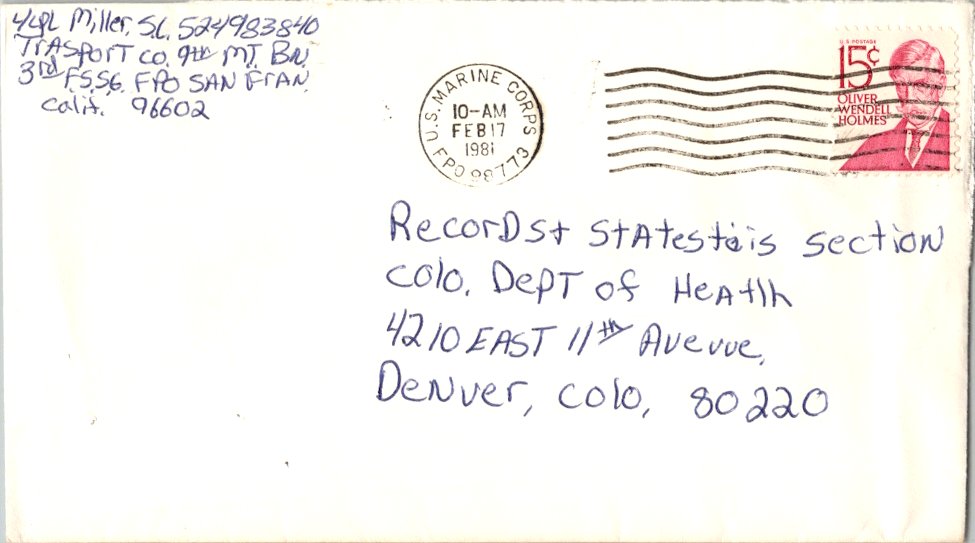 L/cpl Miller, S.C. 524983840
TrAsporT co. 9th MT. BN.
3rd F.S.S.G. FPO SAN FrAN.
Calif. 96602
U.S. MARINE CORPS
10-AM
FEB 17
1981
FPO 98773
U.S. POSTAGE
15¢
OLIVER
WENDELL
HOLMES
RecorDs + StAtestis section
Colo. DepT of HeAtlh
4210 EAST 11th Avevve,
Denver, Colo, 80220